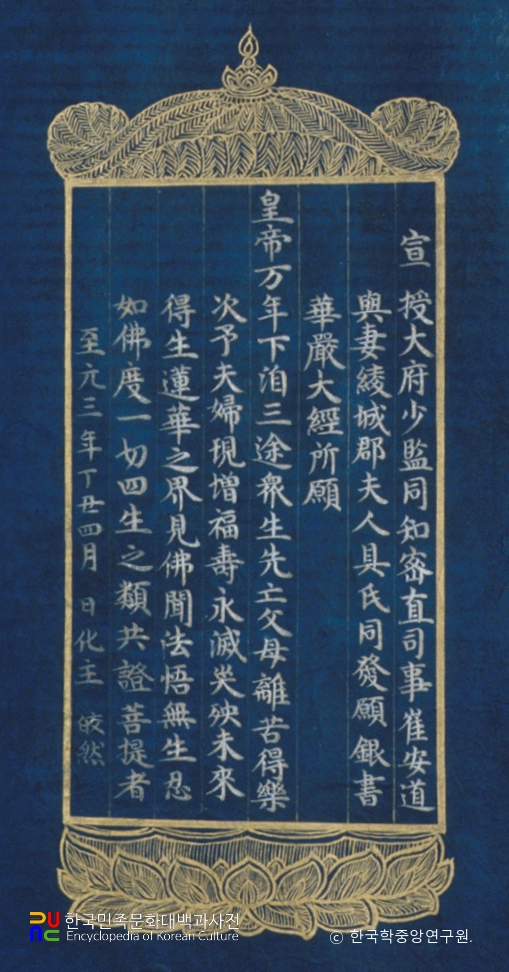 宣 授大府少監同知密直司事崔安道
與妻綾城郡夫人具氏同發願銀書
華嚴大經所願
皇帝万年下洎三途衆生先亡父母離苦得樂
次予夫婦現增福壽永滅灾殃未來
得生蓮華之界見佛聞法悟無生忍
如佛度一切四生之類共證菩提者
至元三年丁丑四月 日化主 皎然
한국민족문화대백과사전
Encyclopedia of Korean Culture
ⓒ 한국학중앙연구원.